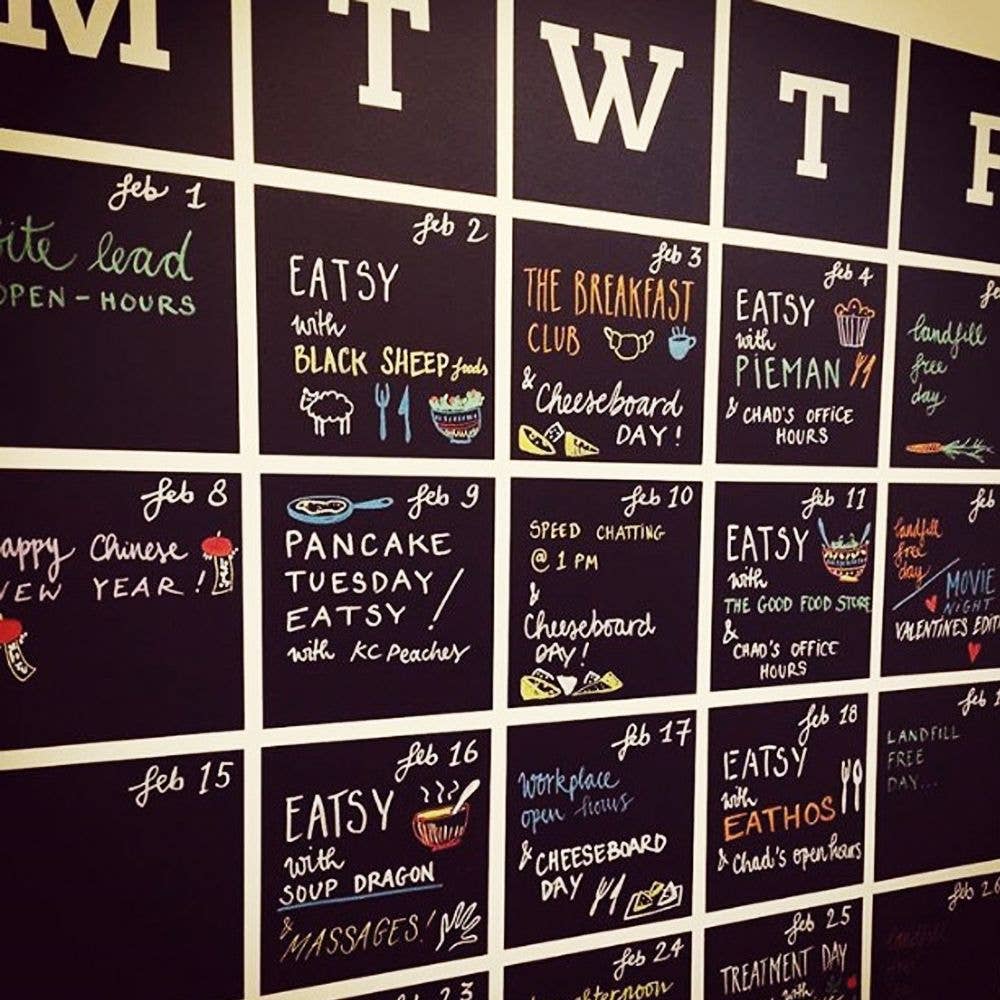 M T W T F
feb 1
lead
OPEN-HOURS
feb 2
EATSY
with
BLACK SHEEP foods
feb 3
THE BREAKFAST
CLUB
& Cheeseboard
DAY!
feb 4
EATSY
with
PIEMAN
& CHAD'S OFFICE
HOURS
landfill
free
day
feb 8
appy Chinese
NEW YEAR!
feb 9
PANCAKE
TUESDAY/
EATSY!
with KC Peaches
feb 10
SPEED CHATTING
@ 1 PM
&
Cheeseboard
DAY!
feb 11
EATSY
with
THE GOOD FOOD STORE
&
CHAD'S OFFICE
HOURS
feb
landfill
free
day
MOVIE
NIGHT
VALENTINES EDIT
feb 15
feb 16
EATSY
with
SOUP DRAGON
&
MASSAGES!
feb 17
workplace
open hours
& CHEESEBOARD
DAY
feb 18
EATSY
with
EATHOS
& Chad's open hours
feb 1
LANDFILL
FREE
DAY...
feb 24
afternoon
feb 25
TREATMENT DAY
with
feb 26